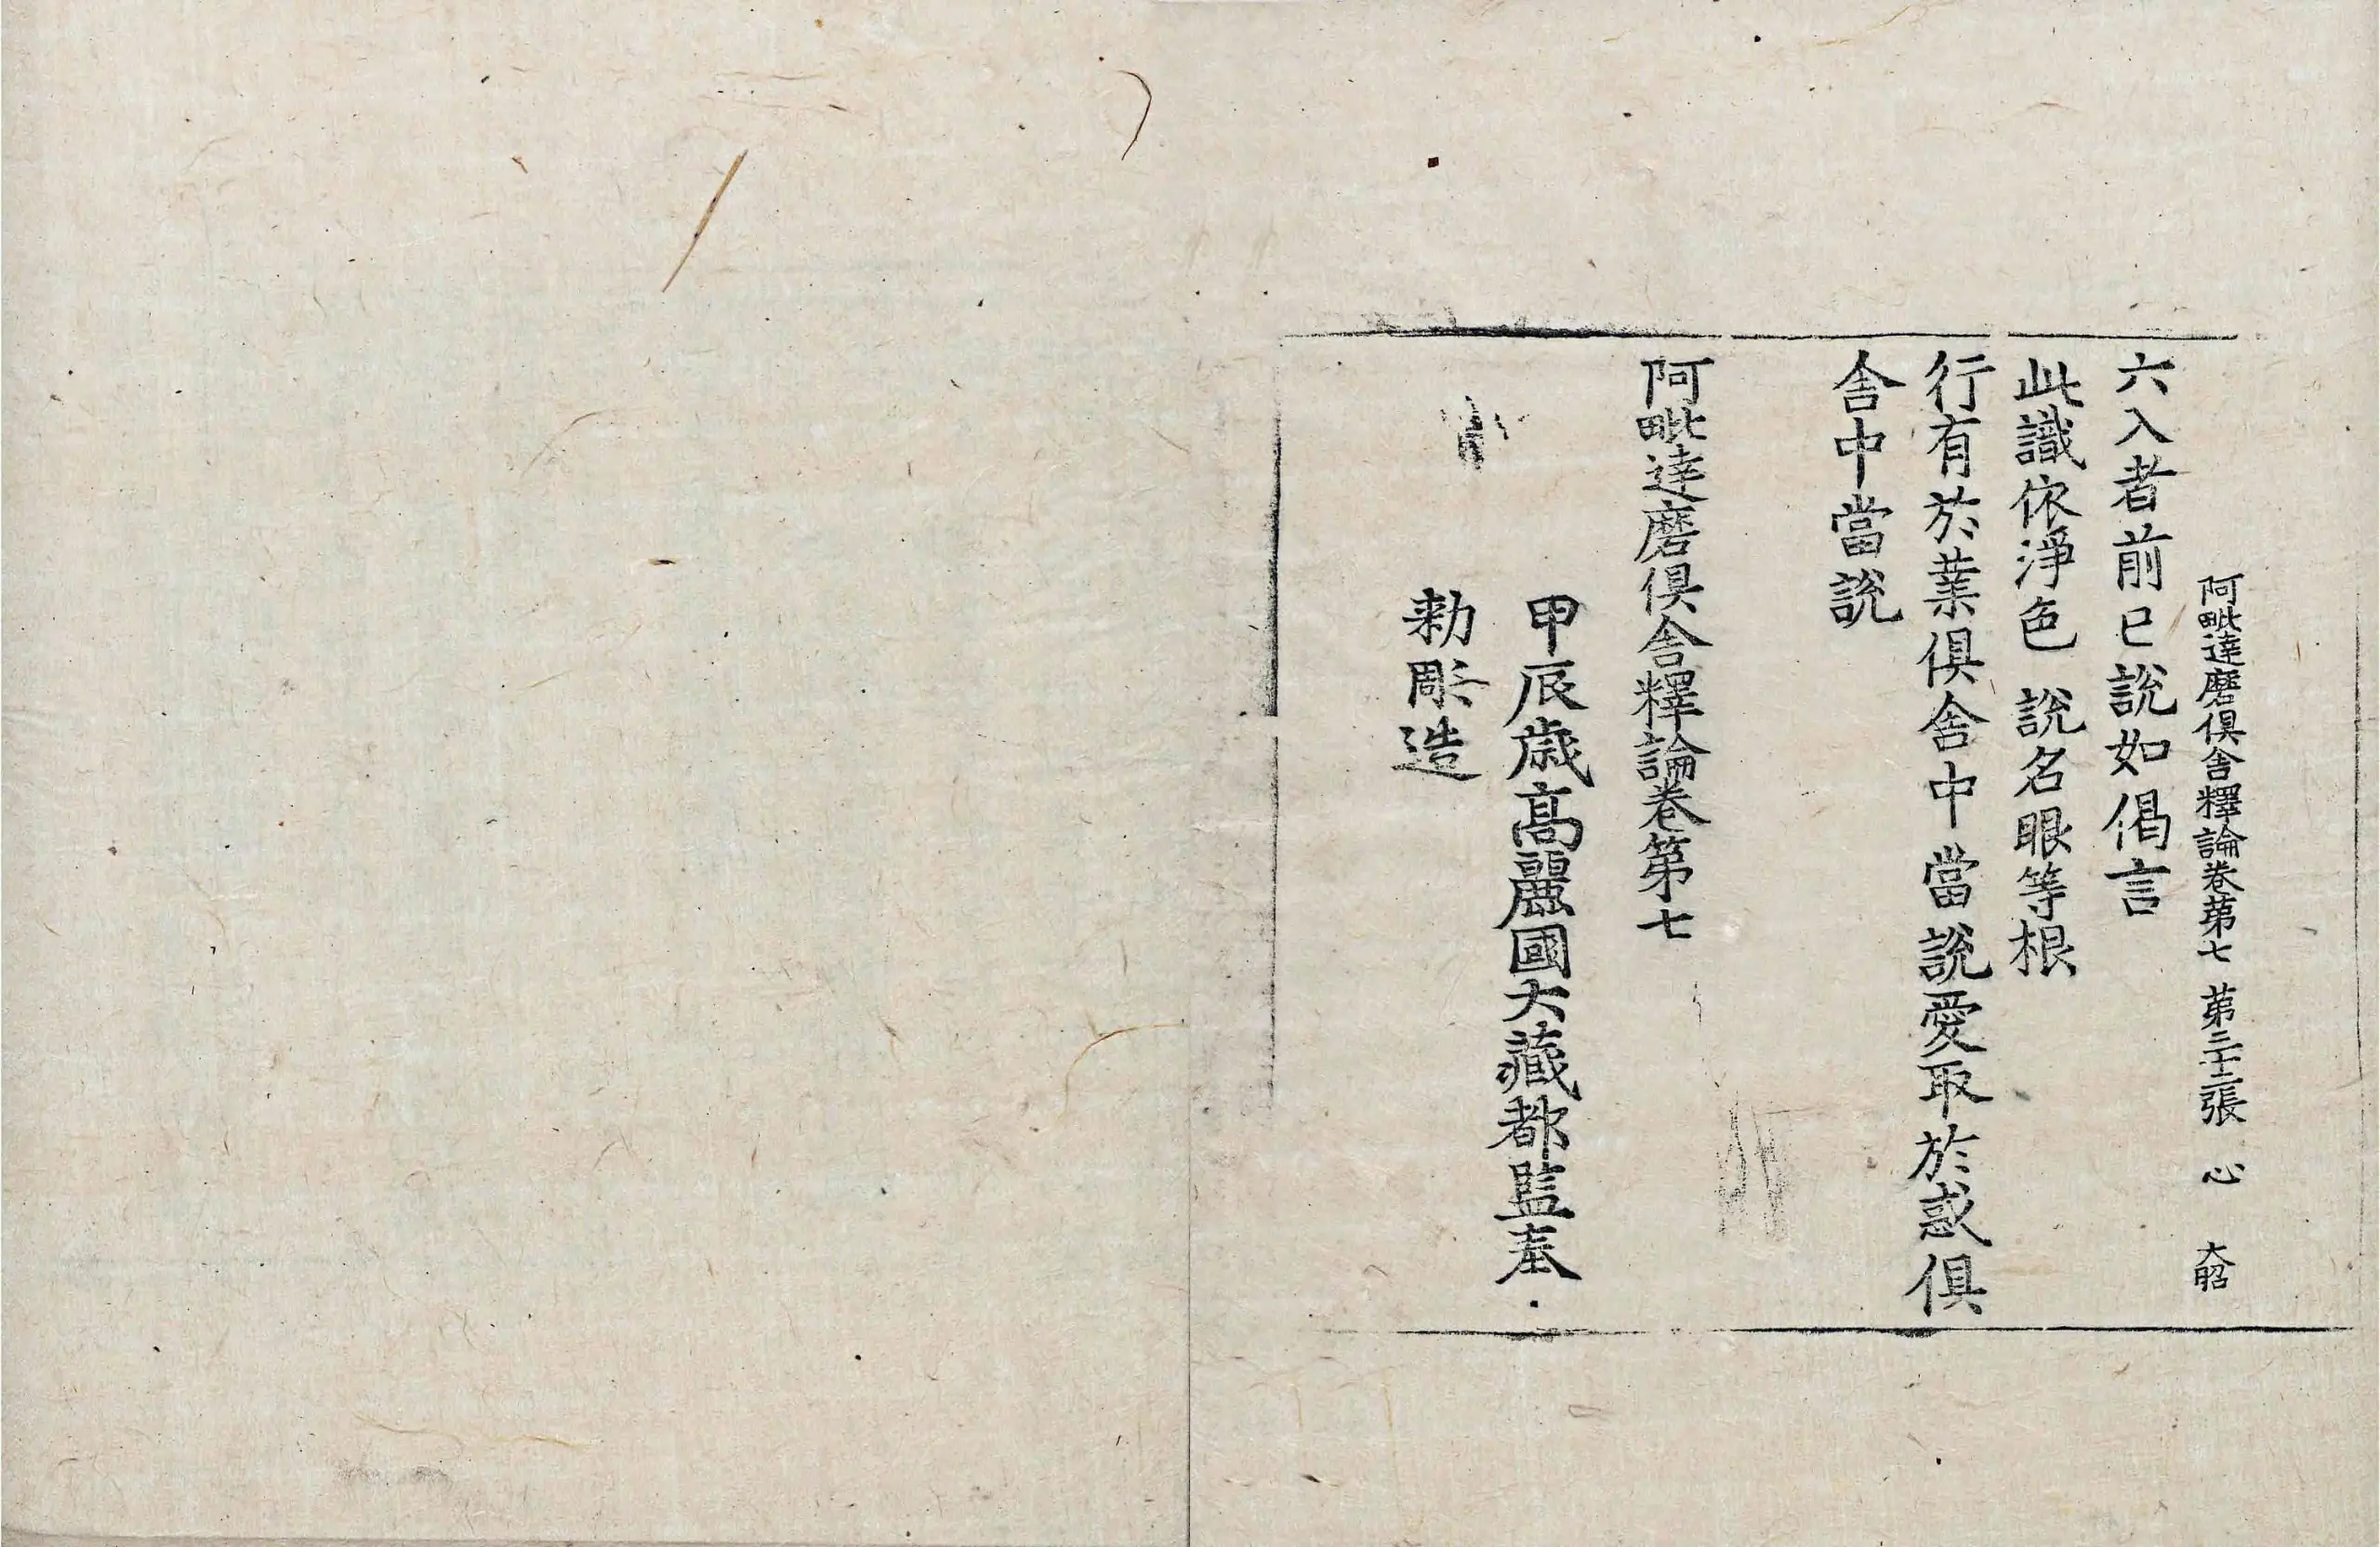 阿毗達磨俱舍釋論卷第七 第三十二張 心 大昭
六入者前已說如偈言
此識依淨色 說名眼等根
行有於業俱舍中當說愛取於惑俱
舍中當說
阿毗達磨俱舍釋論卷第七
甲辰歲高麗國大藏都監奉
勑彫造